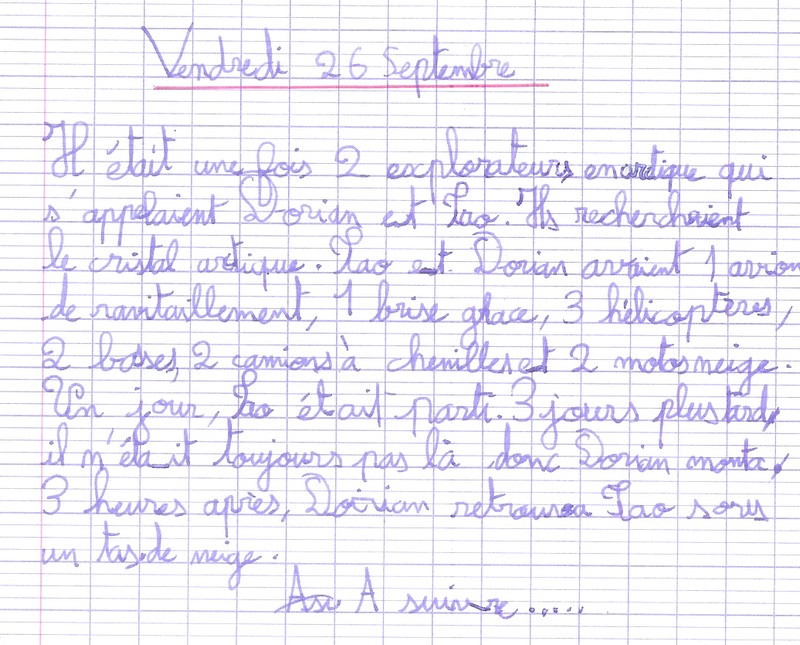 Vendredi 26 Septembre
Il était une fois 2 explorateurs en artique qui
s'appelaient Dorian et Tao. Ils recherchaient
le cristal artique. Tao et Dorian avaient 1 avion
de ravitaillement, 1 brise glace, 3 hélicoptères,
2 bases, 2 camions à chenilles et 2 motosneige.
Un jour, Tao était parti. 3 jours plus tard,
il n'était toujours pas là donc Dorian monta,
3 heures après, Dorian retrouva Tao sous
un tas de neige.
A suivre .....